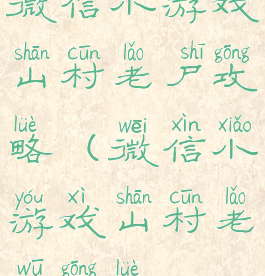 微信小游戏
shān cūn lǎo shī gōng
山村老尸攻
lüè wēi xìn xiǎo
略（微信小
yóu xì shān cūn lǎo
游戏山村老
wū gōng lüè